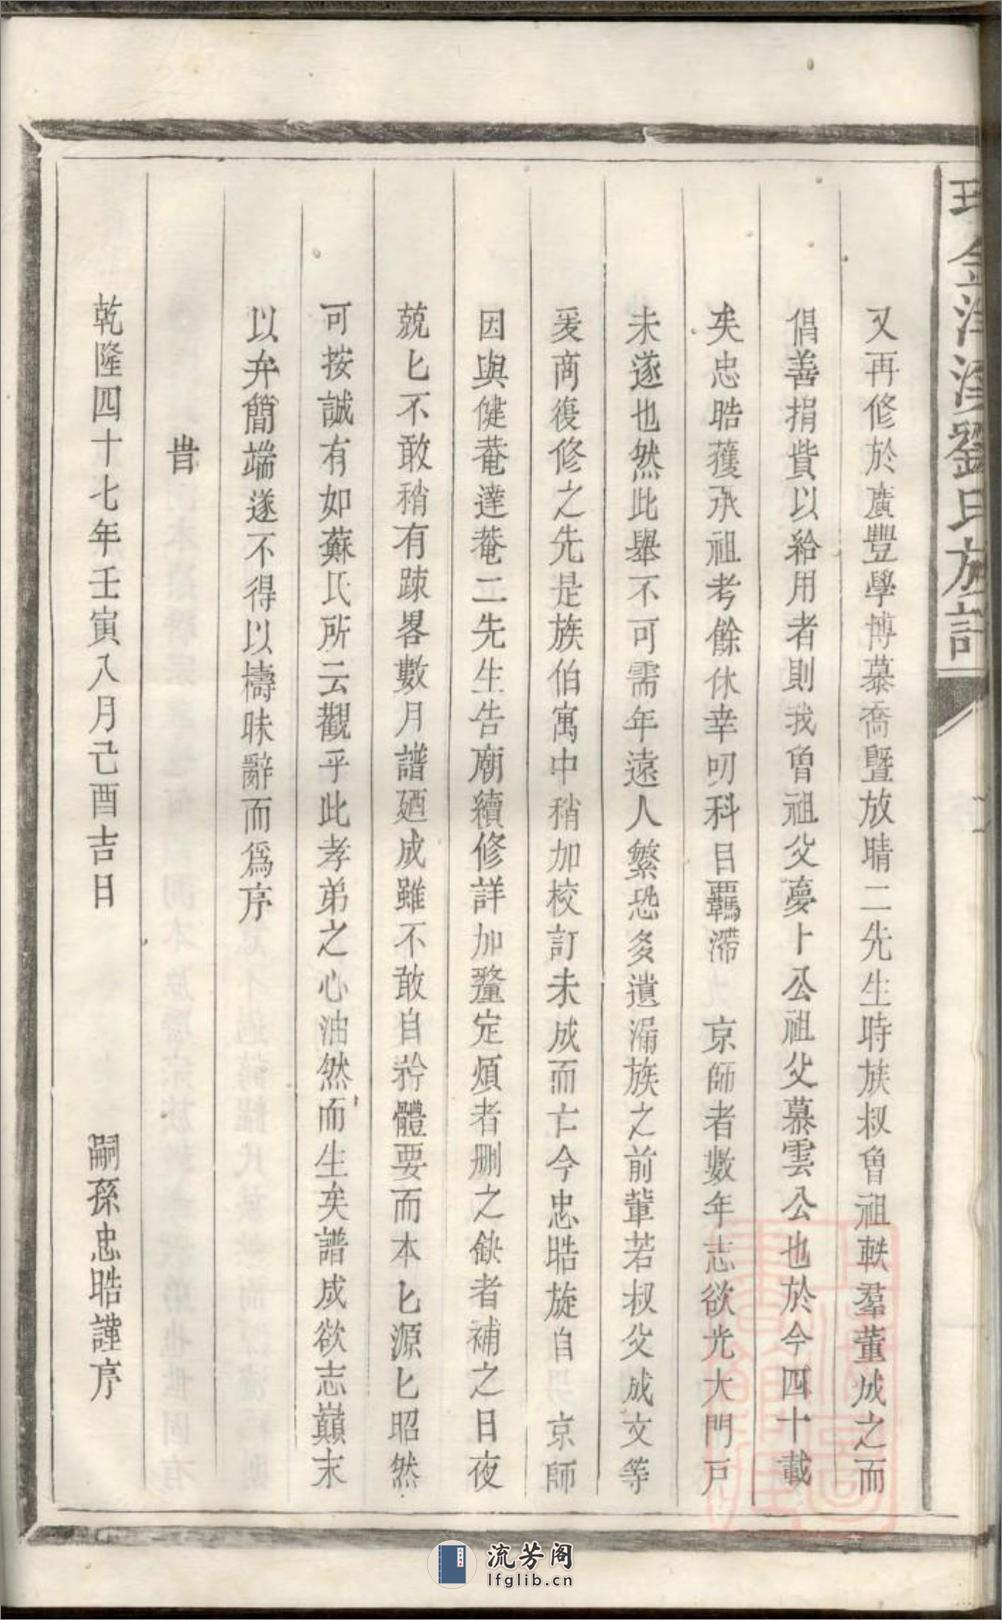 金洋溪劉氏族譜
又再修於廣豐學博慕喬暨放晴二先生時族叔曾祖軼羣董成之而
倡善捐貲以給用者則我曾祖父夢卜公祖父慕雲公也於今四十載
矣忠晧獲承祖考餘休幸叨科目羈滯 京師者數年志欲光大門戸
未遂也然此舉不可需年遠人繁恐多遺漏族之前輩若叔父成文等
爰商復修之先是族伯寓中稍加校訂未成而亡今忠晧旋自 京師
因與健菴達菴二先生告廟續修詳加釐定煩者删之缺者補之日夜
兢匕不敢稍有疎畧數月譜廼成雖不敢自矜體要而本匕源匕昭然
可按誠有如蘇氏所云觀乎此孝弟之心油然而生矣譜成欲志巔末
以弁簡端遂不得以檮昧辭而爲序
旹
乾隆四十七年壬寅八月己酉吉日 嗣孫忠晧謹序
流芳阁
lfglib.cn